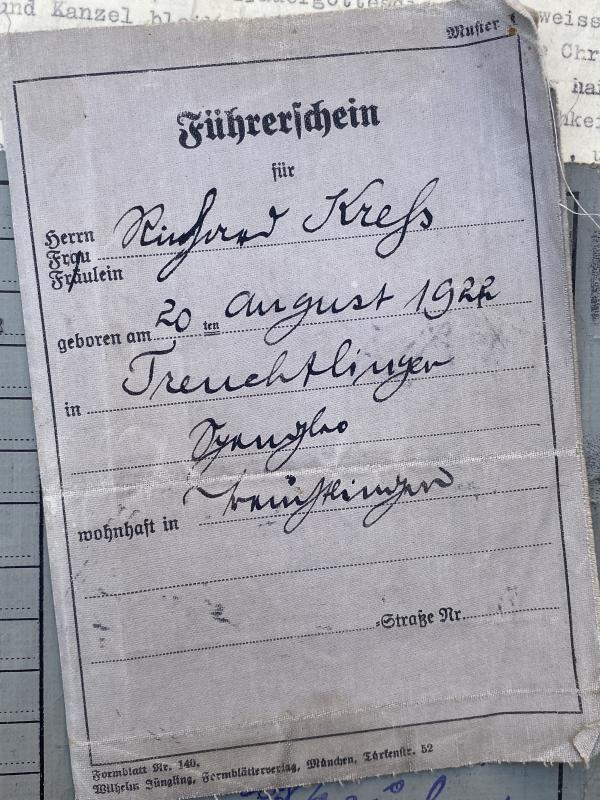 und Kanzel
weiss
Chr
hai
Muster
Führerschein
für
Herrn
Frau
Fräulein
Richard Kreß
geboren am 20 ten August 1922
in Treuchtlingen
Spengler
wohnhaft in Treuchtlingen
-Straße Nr.
Formblatt Nr. 140.
Wilhelm Jüngling, Formblätterverlag, München, Türkenstr. 52